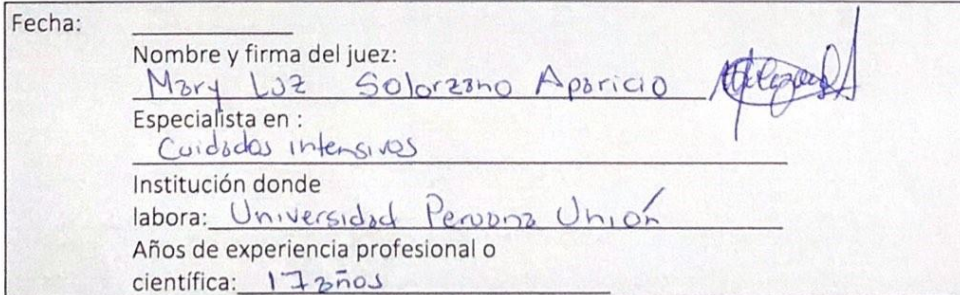 Fecha:
Nombre y firma del juez:
Mary Luz Solorzano Aparicio
Especialista en :
Cuidados intensivos
Institución donde
labora: Universidad Peruana Unión
Años de experiencia profesional o
científica: 17 años